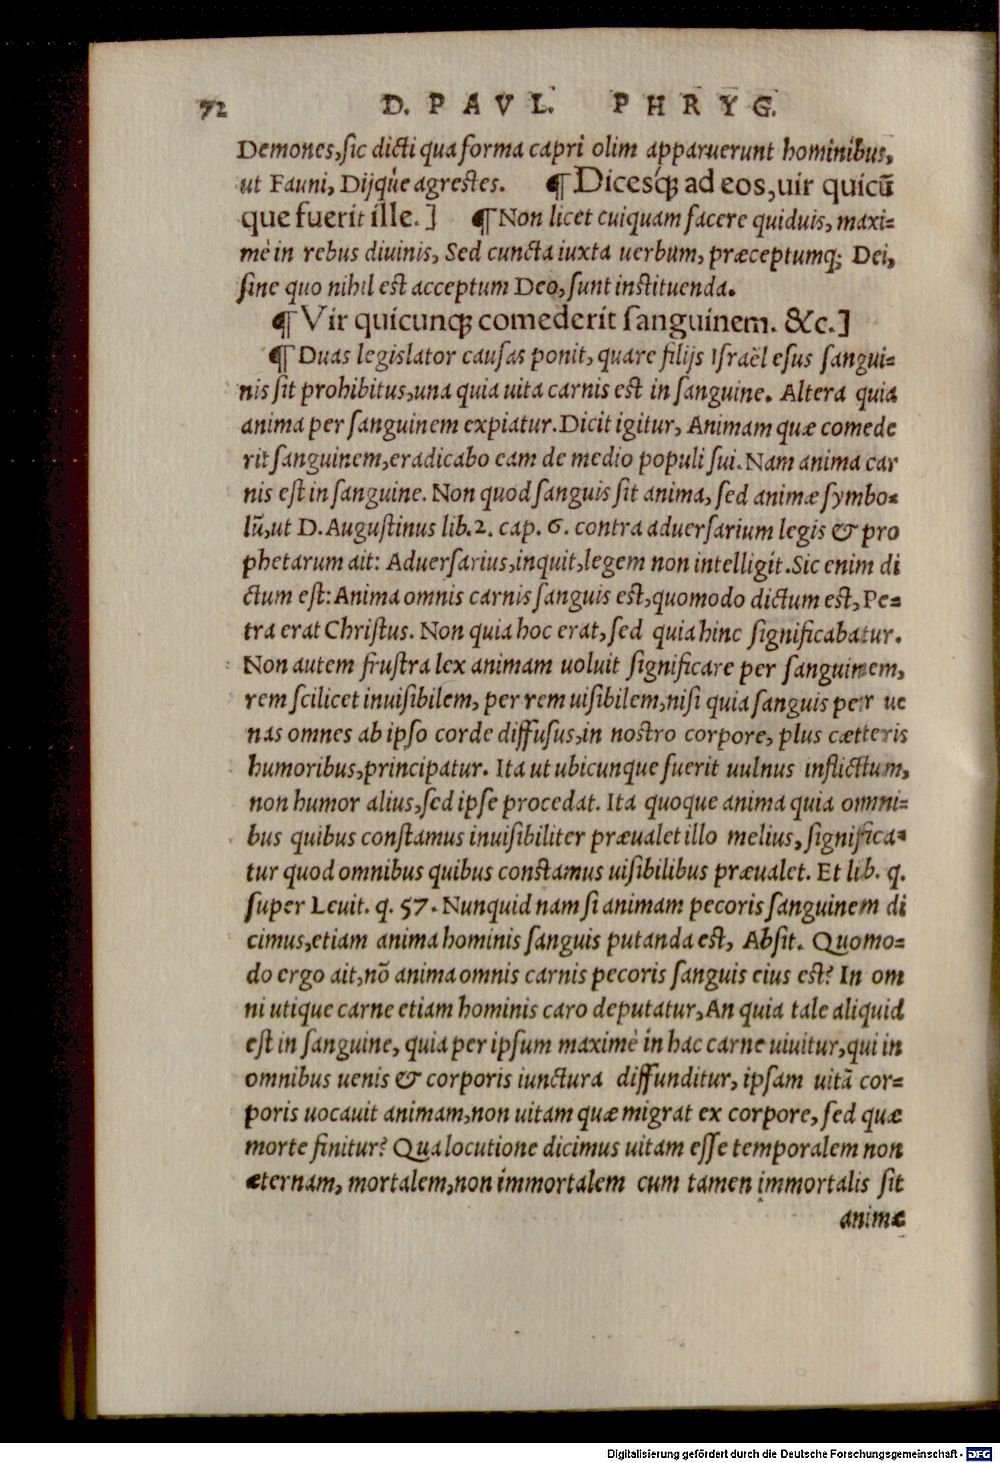 72 D. PAVL. PHRYG.
Demones, sic dicti qua forma capri olim apparuerunt hominibus,
ut Fauni, Dijq́ue agrestes. ¶ Dicesq́; ad eos, uir quicũ
que fuerit ille.] ¶ Non licet cuiquam facere quiduis, maxi-
mè in rebus diuinis, Sed cuncta iuxta uerbum, præceptumq; Dei,
sine quo nihil est acceptum Deo, sunt instituenda.
¶ Vir quicunq; comederit sanguinem. &c.]
¶ Duas legislator causas ponit, quare filijs Israël esus sangui-
nis sit prohibitus, una quia uita carnis est in sanguine. Altera quia
anima per sanguinem expiatur. Dicit igitur, Animam quæ comede
rit sanguinem, eradicabo eam de medio populi sui. Nam anima car
nis est in sanguine. Non quod sanguis sit anima, sed animæ symbo-
lũ, ut D. Augustinus lib. 2. cap. 6. contra aduersarium legis & pro
phetarum ait: Aduersarius, inquit, legem non intelligit. Sic enim di
ctum est: Anima omnis carnis sanguis est, quomodo dictum est, Pe-
tra erat Christus. Non quia hoc erat, sed quia hinc significabatur.
Non autem frustra lex animam uoluit significare per sanguinem,
rem scilicet inuisibilem, per rem uisibilem, nisi quia sanguis per ue
nas omnes ab ipso corde diffusus, in nostro corpore, plus cætteris
humoribus, principatur. Ita ut ubicunque fuerit uulnus inflicttum,
non humor alius, sed ipse procedat. Ita quoque anima quia omni-
bus quibus constamus inuisibiliter præualet illo melius, significa-
tur quod omnibus quibus constamus uisibilibus præualet. Et lib. q.
super Leuit. q. 57. Nunquid nam si animam pecoris sanguinem di
cimus, etiam anima hominis sanguis putanda est, Absit. Quomo-
do ergo ait, nõ anima omnis carnis pecoris sanguis eius est? In om
ni utique carne etiam hominis caro deputatur, An quia tale aliquid
est in sanguine, quia per ipsum maximè in hac carne uiuitur, qui in
omnibus uenis & corporis iunctura diffunditur, ipsam uitã cor-
poris uocauit animam, non uitam quæ migrat ex corpore, sed quæ
morte finitur? Qua locutione dicimus uitam esse temporalem non
æternam, mortalem, non immortalem cum tamen immortalis sit
animæ
Digitalisierung gefördert durch die Deutsche Forschungsgemeinschaft - DFG